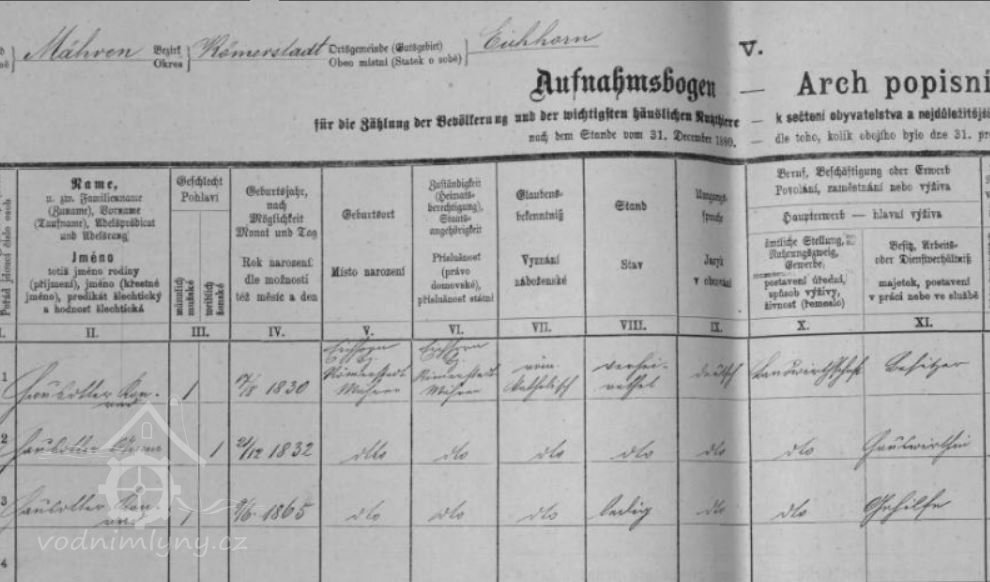 Mähren Bezirk Okres Römerstadt Ortsgemeinde (Gutsgebiet) Obec místní (Statek o sobě) Eichhorn
V.
Aufnahmsbogen — Arch popisní
für die Zählung der Bevölkerung und der wichtigsten häuslichen Nutzthiere — k sečtení obyvatelstva a nejdůležitějš
nach dem Stande vom 31. December 1880. — dle toho, kolik obojího bylo dne 31. pr
Pořád jdoucí číslo osob
Name,
u. zw. Familienname
(Zuname), Vorname
(Taufname), Adelsprädicat
und Adelsrang
Jméno
totiž jméno rodiny
(příjmení), jméno (křestné
jméno), predikát šlechtický
a hodnost šlechtická
Geschlecht
Pohlaví
männlich
mužské
weiblich
ženské
Geburtsjahr,
nach
Möglichkeit
Monat und Tag
Rok narození
dle možnosti
též měsíc a den
Geburtsort
Místo narození
Zuständigkeit
(Heimats-
berechtigung),
Staats-
angehörigkeit
Příslušnost
(právo
domovské),
příslušnost státní
Glaubens-
bekenntniß
Vyznání
náboženské
Stand
Stav
Umgangs-
sprache
Jazyk
v obcování
Beruf, Beschäftigung oder Erwerb
Povolání, zaměstnání nebo výživa
Haupterwerb — hlavní výživa
ämtliche Stellung,
Nahrungszweig,
Gewerbe
postavení úřední,
spůsob výživy,
živnost (řemeslo)
Besitz, Arbeits-
oder Dienstverhältniß
majetek, postavení
v práci nebo ve službě
I. II. III. IV. V. VI. VII. VIII. IX. X. XI.
1 1 17/8 1830 Eichhorn Bz. Römerstadt Mähren Eichhorn Bz. Römerstadt Mähren röm. katholisch verhei- rathet deutsch Landwirthschaft Besitzer
2 1 21/12 1832 dto dto dto dto dto dto Hauswirthin
3 1 9/6 1865 dto dto dto ledig dto dto Gehilfe
4
vodnimlyny.cz